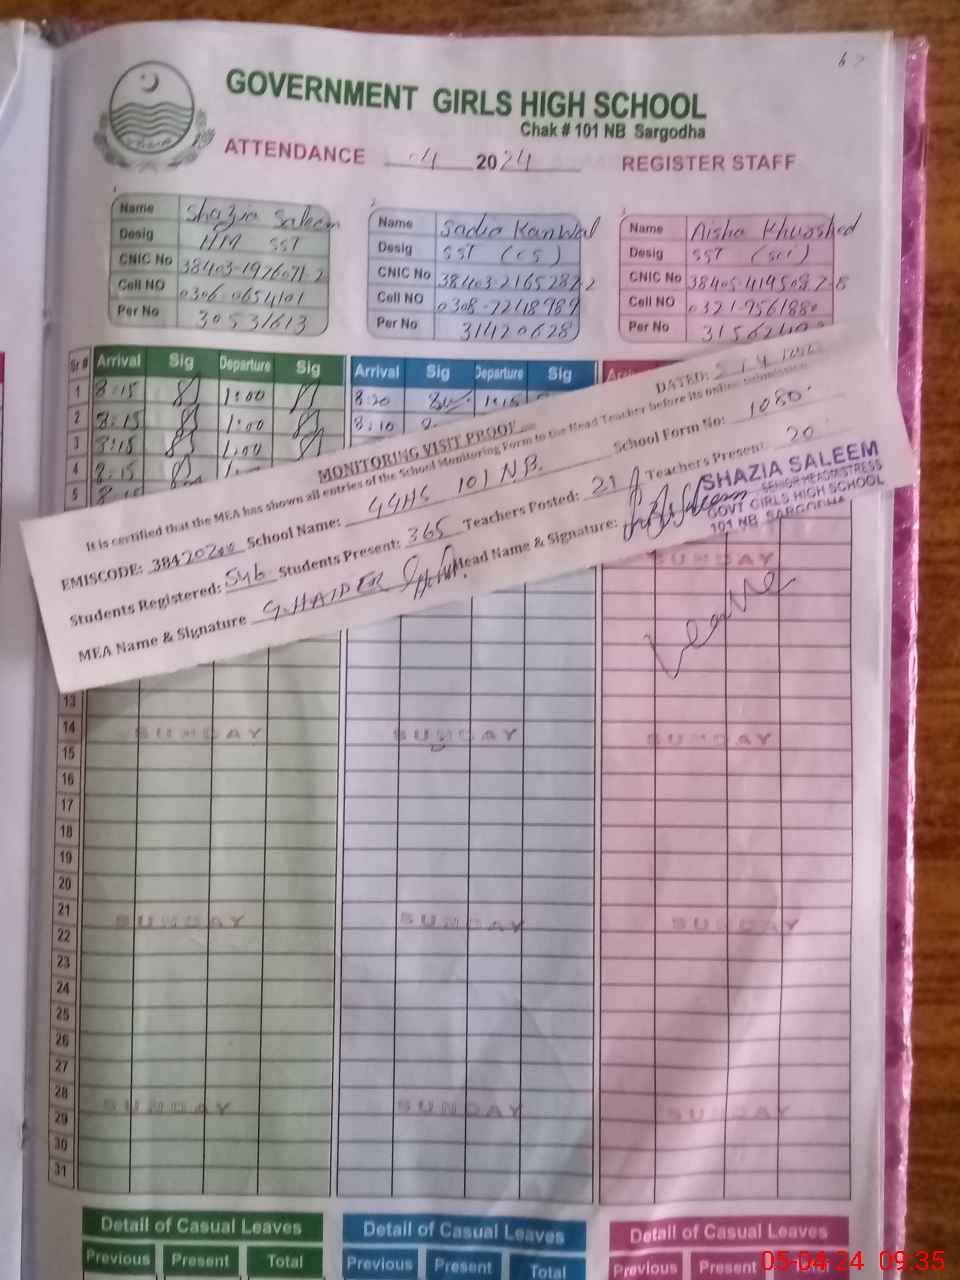 GOVERNMENT GIRLS HIGH SCHOOL
Chak # 101 NB Sargodha
ATTENDANCE 04 2024 REGISTER STAFF
Name Shazia Saleem
Desig HM SST
CNIC No 38403-1926071-2
Cell NO 0306-0654101
Per No 30531613
Name Sadia Kanwal
Desig SST (CS)
CNIC No 38403-2165287-2
Cell NO 0308-7248989
Per No 31420628
Name Aisha Khurshed
Desig SST (sci)
CNIC No 38405-4195087-8
Cell NO 0321-9561880
Per No
Sr # Arrival Sig Departure Sig Arrival Sig Departure Sig
1 8:15 1:00 8:20 1:15
2 8:15 1:00 8:10
3 8:15 1:00
4 8:15
5 8:15
MONITORING VISIT PROOF
DATED:
It is certified that the MEA has shown all entries of the School Monitoring Form to the Head Teacher before its online submission
EMISCODE: School Name: GGHS 101 NB. School Form No: 1080
Students Registered: 546 Students Present: 365 Teachers Posted: 21 Teachers Present: 20
MEA Name & Signature G.HAIDER Head Name & Signature:
SHAZIA SALEEM
SENIOR HEADMISTRESS
GOVT GIRLS HIGH SCHOOL
101 NB SARGODHA
SUNDAY
Leave
13
14 SUNDAY SUNDAY SUNDAY
15
16
17
18
19
20
21 SUNDAY SUNDAY SUNDAY
22
23
24
25
26
27
28 SUNDAY SUNDAY SUNDAY
29
30
31
Detail of Casual Leaves Detail of Casual Leaves Detail of Casual Leaves
Previous Present Total Previous Present Total Previous Present
05-04-24 09:35